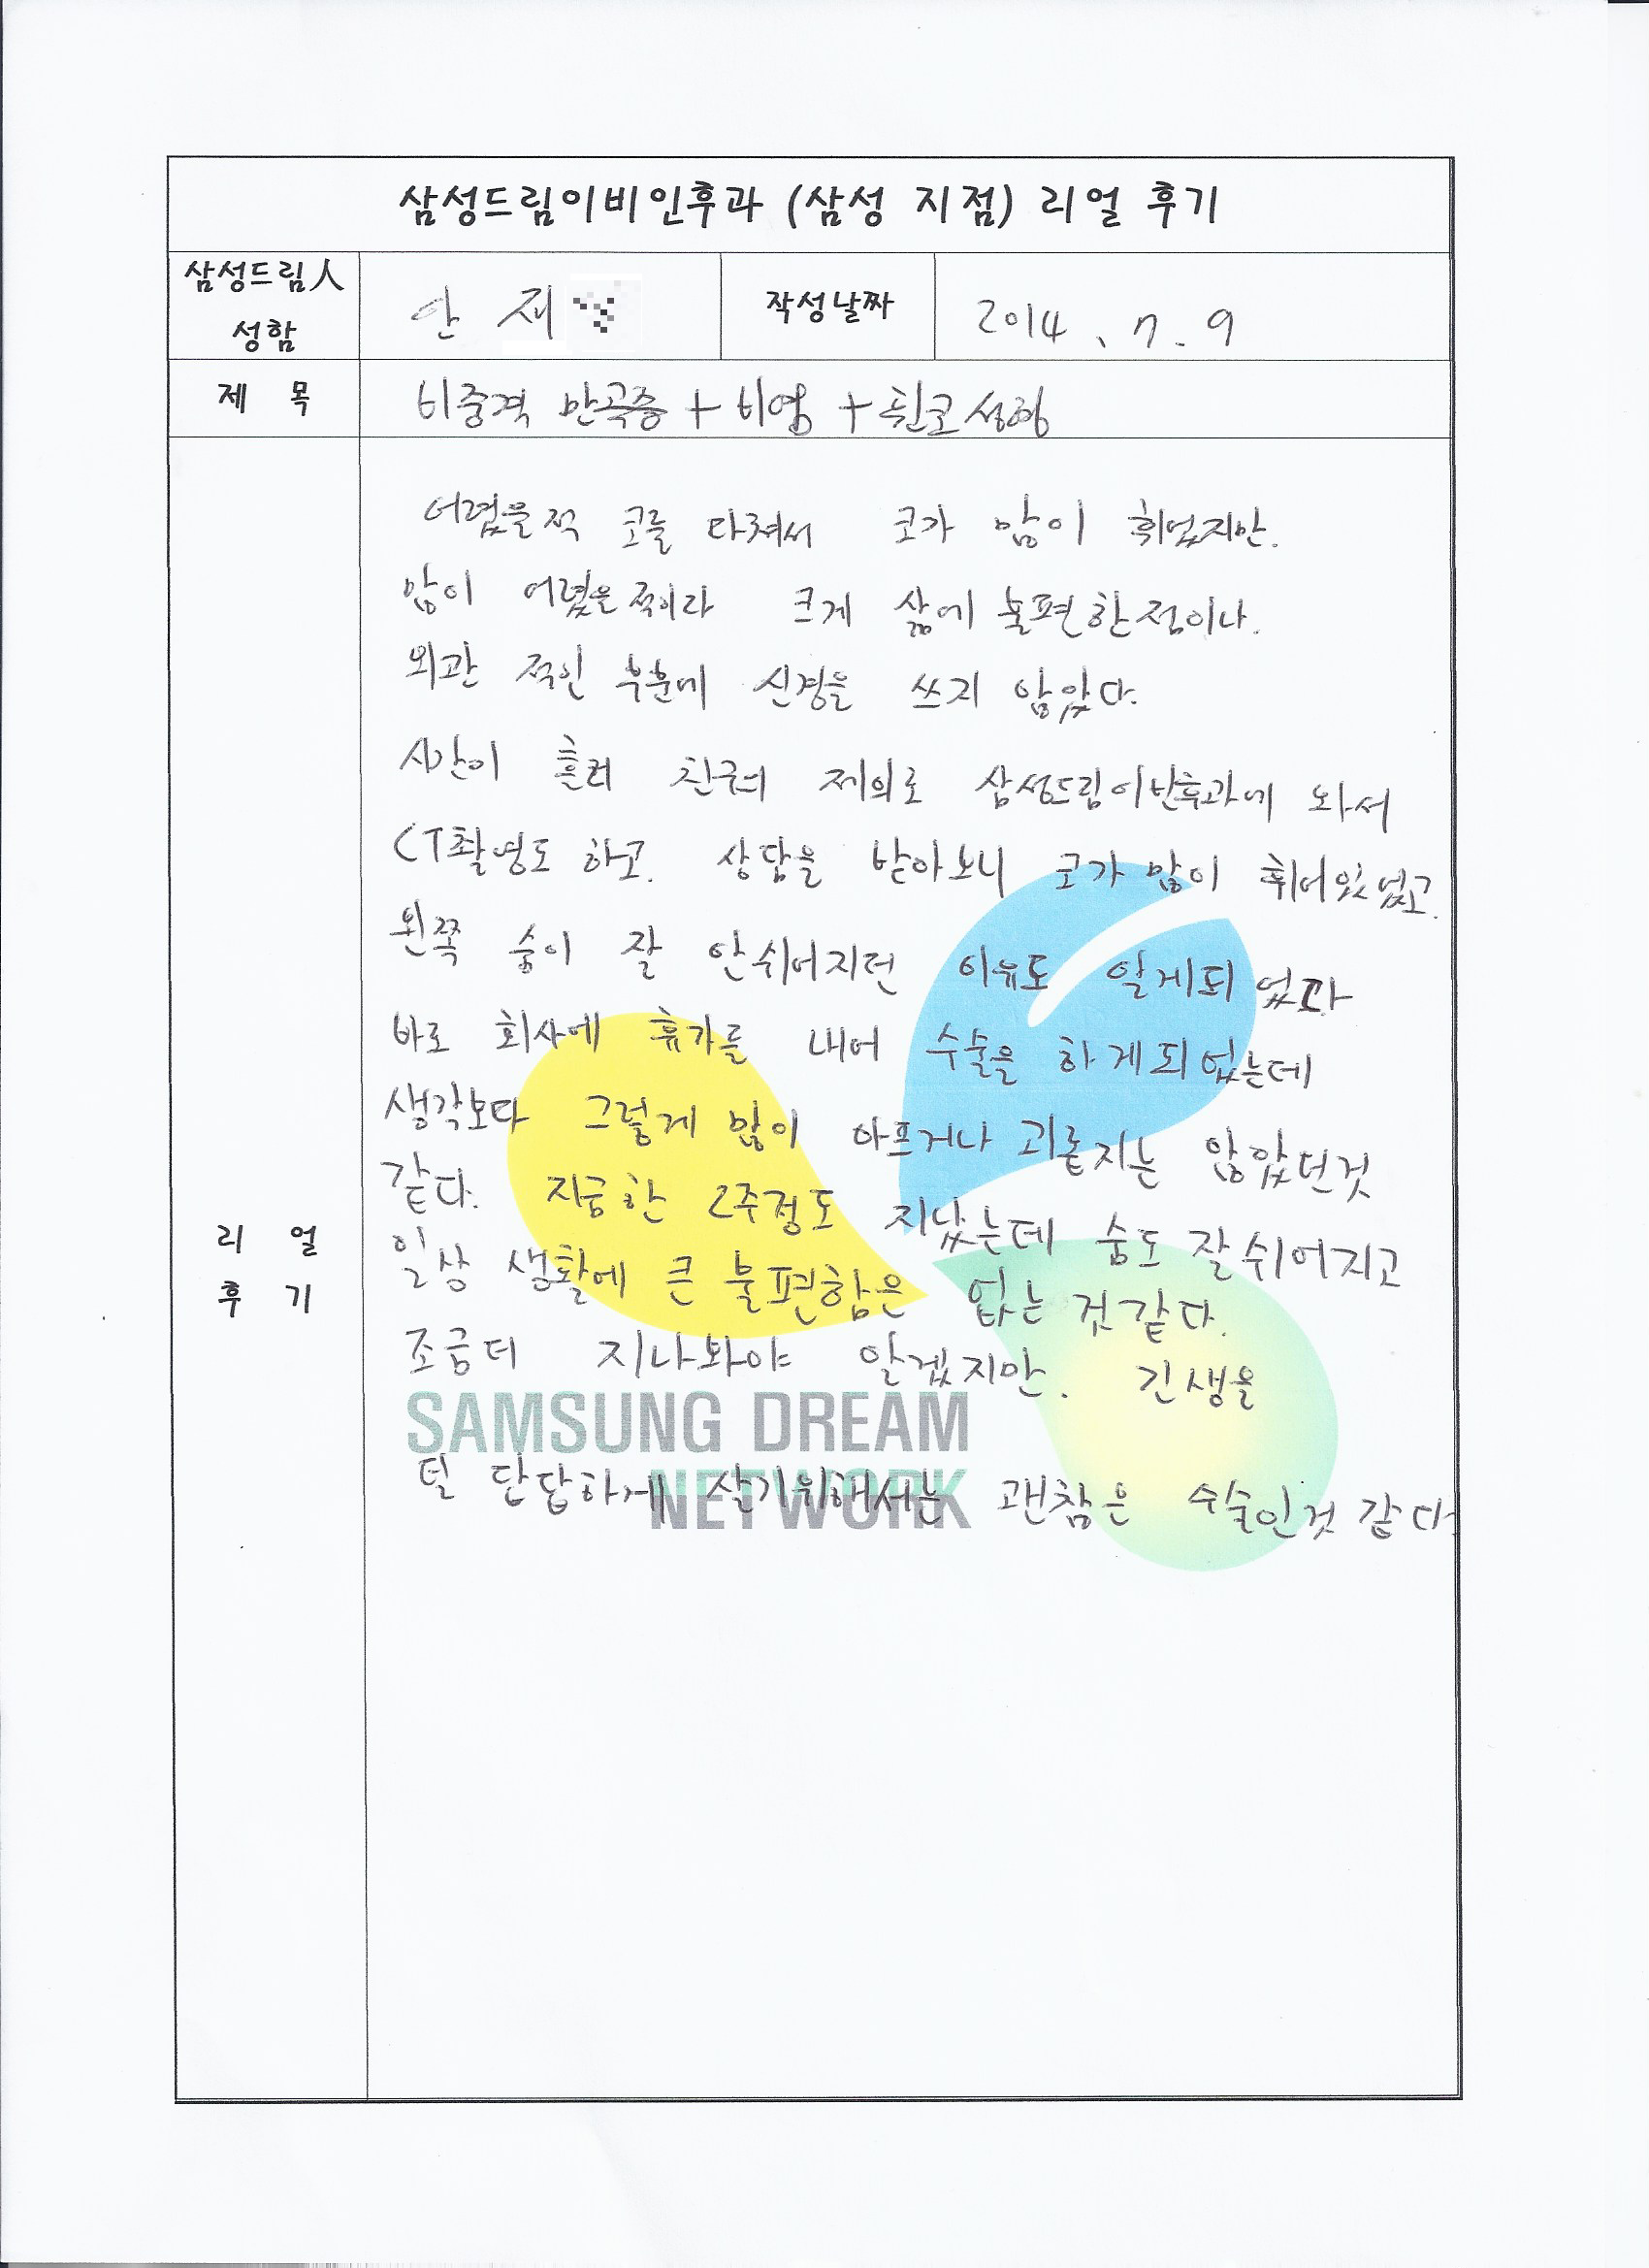 삼성드림이비인후과 (삼성 지점) 리얼 후기
삼성드림人 성함
안 재
작성날짜
2014. 7. 9
제 목
비중격 만곡증 + 비염 + 휜코성형
어렸을적 코를 다쳐서 코가 많이 휘었지만.
많이 어렸을적이라 크게 삶에 불편한점이나.
외관 적인 부분에 신경을 쓰지 않았다.
시간이 흘러 친구의 제의로 삼성드림이빈후과에 와서
CT촬영도 하고. 상담을 받아보니 코가 많이 휘어있었고.
왼쪽 숨이 잘 안쉬어지던 이유도 알게되었다
바로 회사에 휴가를 내어 수술을 하게되었는데
생각보다 그렇게 많이 아프거나 괴롭지는 않았던것
같다. 지금한 2주정도 지났는데 숨도 잘쉬어지고
일상 생활에 큰 불편함은 없는 것 같다.
조금더 지나봐야 알겠지만. 긴생을
덜 답답하게 살기위해서는 괜찮은 수술인것 같다
리 얼
후 기
SAMSUNG DREAM
NETWORK